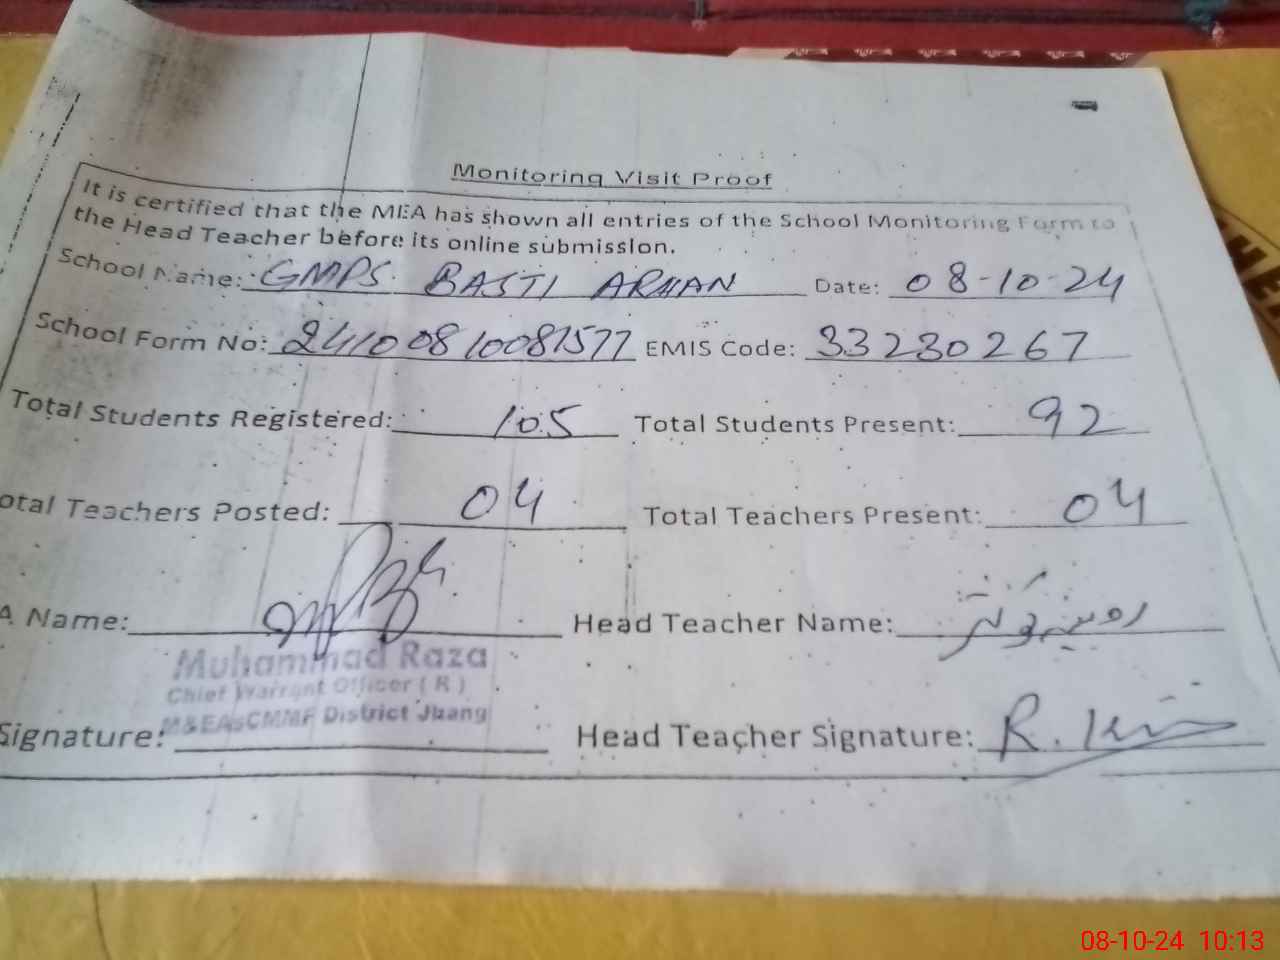 Monitoring Visit Proof
It is certified that the MEA has shown all entries of the School Monitoring Form to
the Head Teacher before its online submission.
School Name: GMPS. BASTI ARHAN Date: 08-10-24
School Form No: 24100810081577 EMIS Code: 33230267
Total Students Registered: 105 Total Students Present: 92
otal Teachers Posted: 04 Total Teachers Present: 04
A Name: Head Teacher Name:
Muhammad Raza
Chief Warrant Officer ( R )
M&EAsCMMF District Jhang
Signature: Head Teacher Signature: R.
08-10-24 10:13